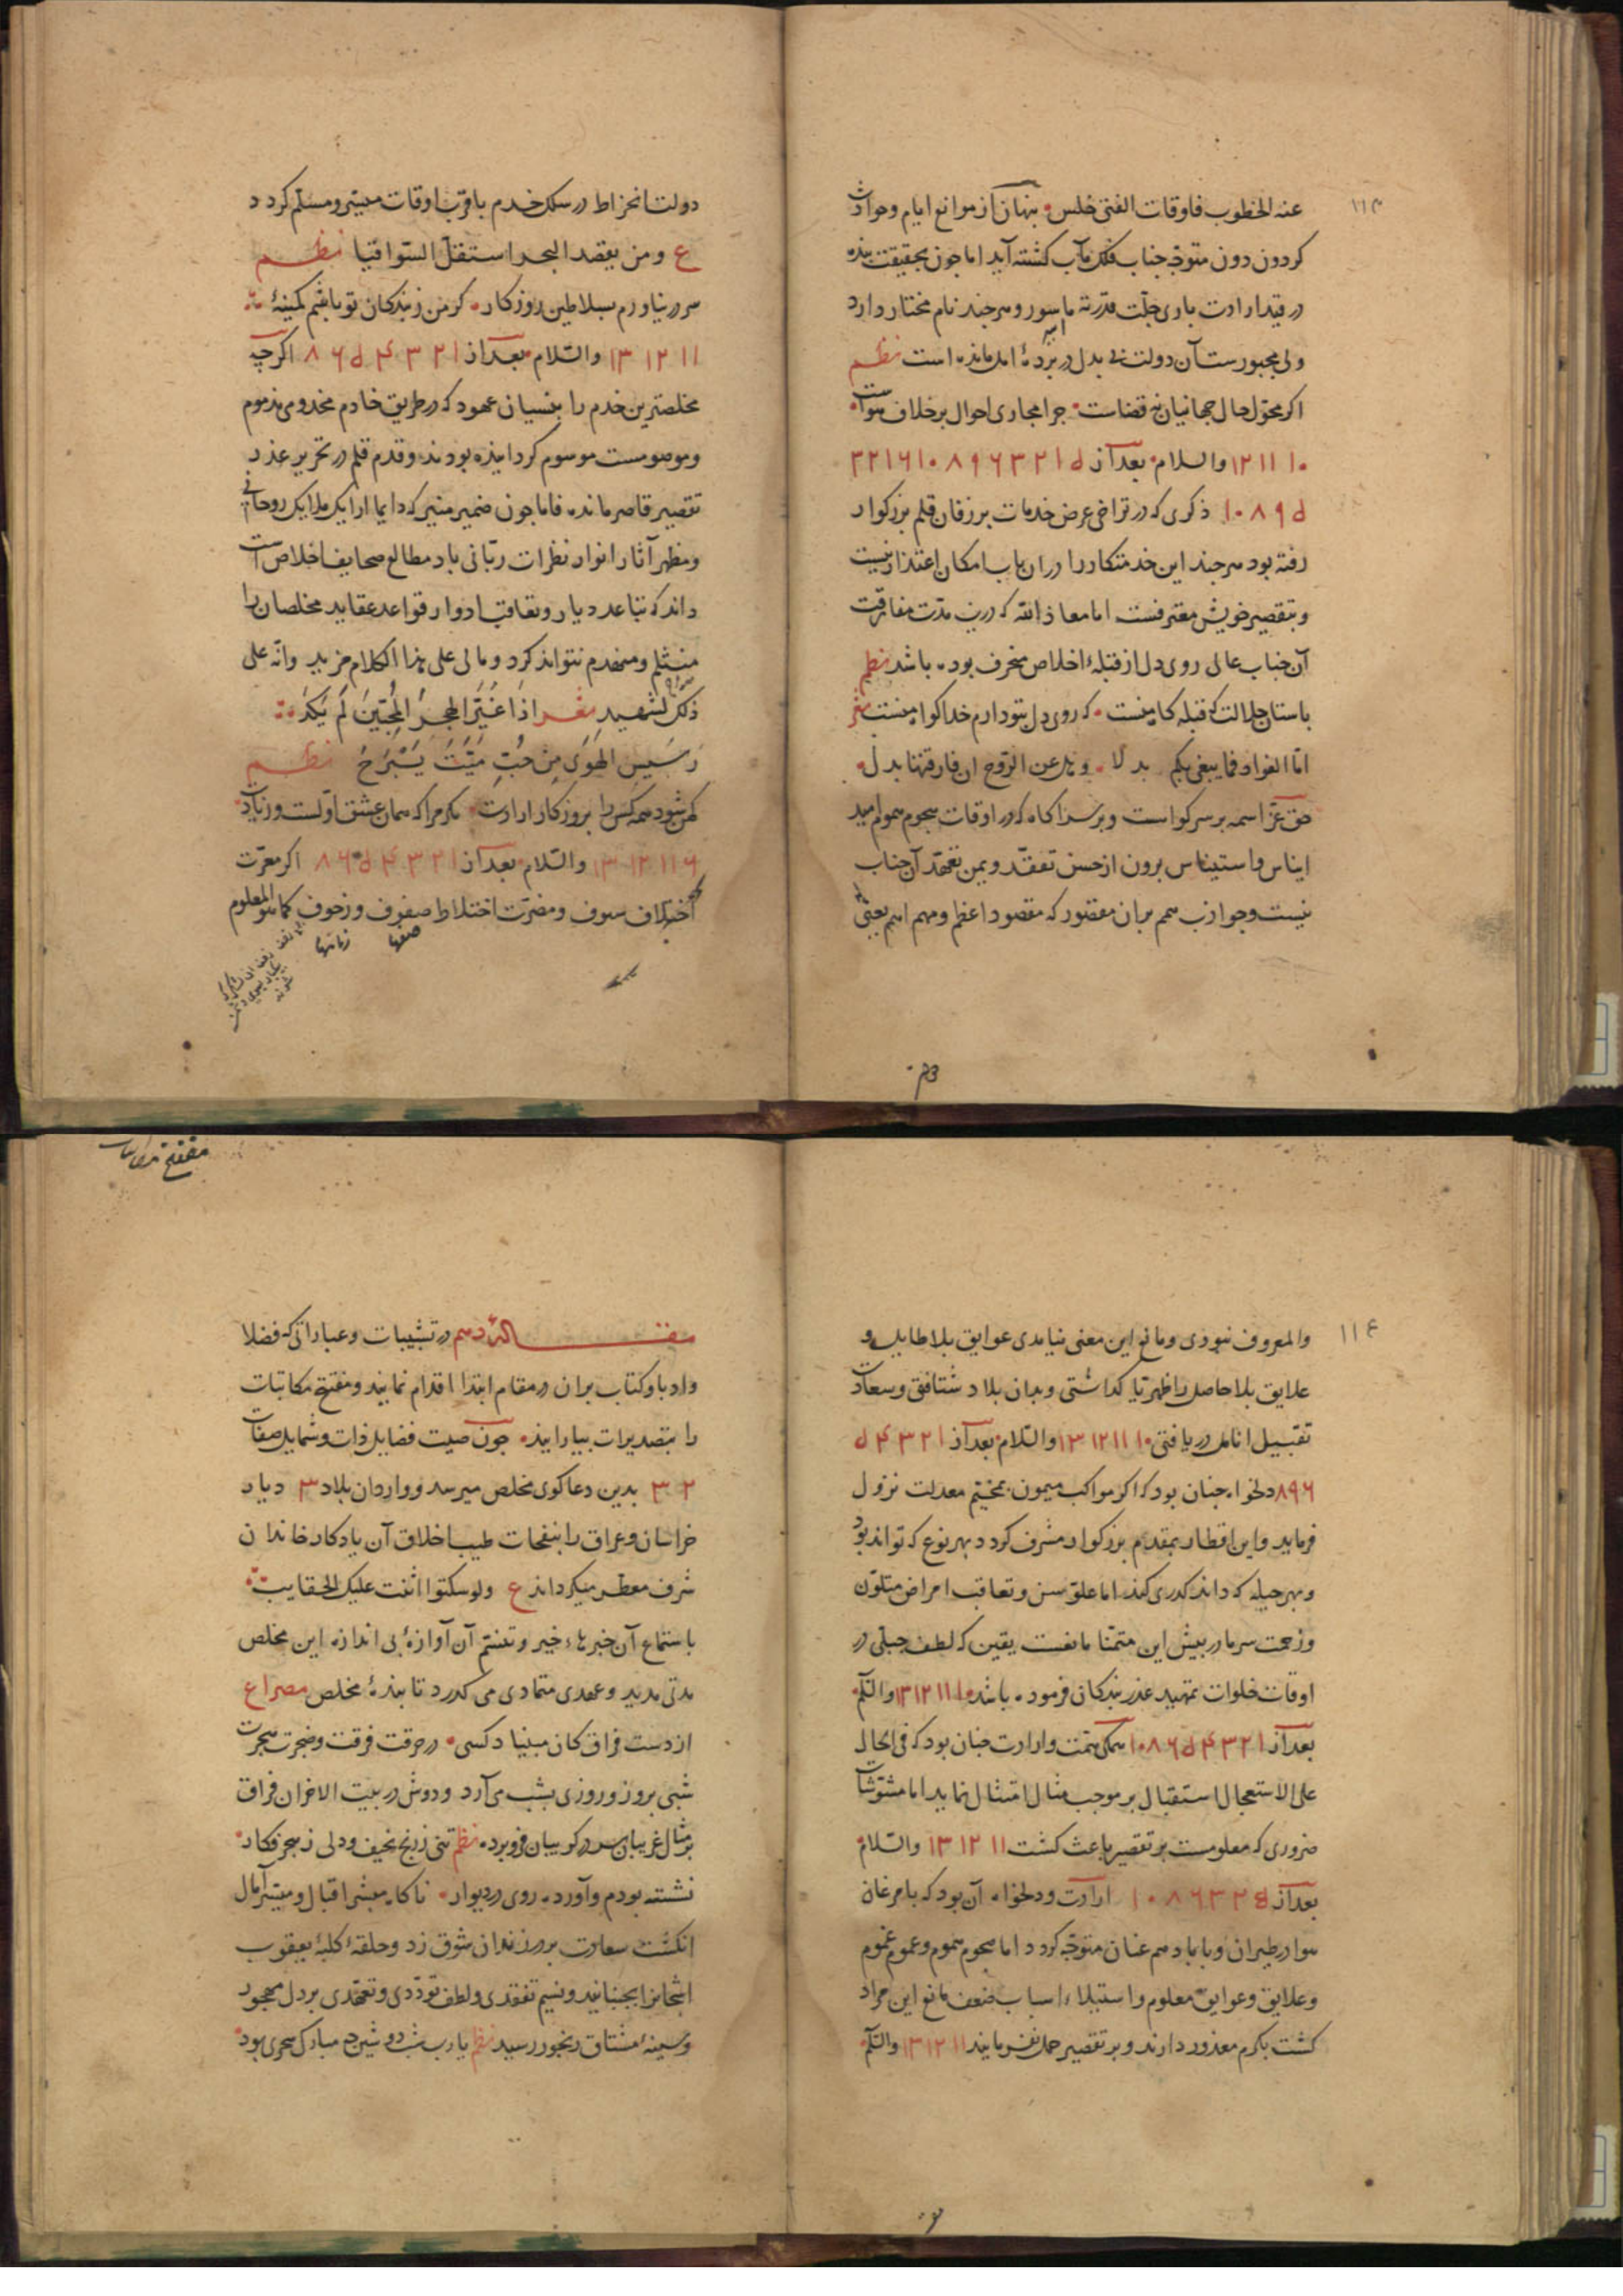 ۱۱۳
عنه الخطوب فاوقات الفتی خلس بنهان از موانع ایام وحوادث
کردون دون متوجه جناب فلک مآب کشته آید اما جون بحقیقت بنده
در قید ارادت باری جلت قدرته ماسور و هر جند نام مختار دارد
ولی مجبورست آن دولت بی بدل در بردهٔ امل مانده است نظم
اکر محول حال جهانیان نه قضاست جرا مجاری احوال بر خلاف هواست
۱۰ ۱۱ ۱۲ والسلام بعد از
۱۰ ذکری که در تراخی عرض خدمات بر زفان قلم بزرکوار
رفته بود هر جند این خدمتکار را دران باب امکان اعتذار نیست
و بتقصیر خویش معترفست اما معاذ الله که درین مدت مفارقت
آن جناب عالی روی دل از قبلهٔ اخلاص منحرف بوده باشد نظم
باستان جلالت که قبله کاه منست که روی دل بتو دارم خدا کواه منست شعر
اما الفواد فما یبغی بکم بدلا وهل عن الروح ان فارقتها بدل
حق عز اسمه بر سر کواست و بر سر اکاه که در اوقات هجوم هموم امید
ایناس و استیناس برون از حسن تفقد و یمن تعهد آن جناب
نیست و جواذب همم بران مقصور که مقصود اعظم و مهم اهم یعنی
دولت انخراط در سلک خدم باقرب اوقات میسر و مسلم کردد
ع ومن یقصد البحر استقل السواقیا نظم
سر در نیاورم بسلاطین روزکار کر من ز بندکان تو باشم کمینهٔ
۱۱ ۱۲ ۱۳ والسلام بعد از ۱ ۲ ۳ ۴ ۵ ۶ ۸ اکرجه
مخلصترین خدم را بنسیان عهود که در طریق خادم مخدومی مذموم
و موصومست موسوم کردانیده بودند و قدم قلم در تحریر عذر
تقصیر قاصر مانده فاما جون ضمیر منیر که دایما ارایک ملایک روحانی
و مظهر آثار انوار نظرات ربانی باد مطالع صحایف اخلاص است
داند که تباعد دیار و تعاقب ادوار قواعد عقاید مخلصان را
منثلم و منهدم نتواند کرد و مالی علی هذا الکلام مزید وانه علی
ذلک لشهید شعر اذا غیر الهجر المحبین لم یکد
رسیس الهوی من حب میت یبرح نظم
کهن شود همه کس را بروزکار ارادت مکر مرا که همان عشق اولست و زیادت
۱۱ ۱۲ ۱۳ والسلام بعد از ۱ ۲ ۳ ۴ ۵ ۶ ۸ اکر معرت
اختلاف سیوف و مضرت اختلاط صفوف و زحوف کما هو المعلوم
صفها
۱۱۴
والمعروف نبودی و مانع این معنی نیامدی عوایق بلا طایل و
علایق بلا حاصل را ظهریا کذاشتی و بدان بلاد شتافتی و سعادت
تقبیل انامل دریافتی ۱۰ ۱۱ ۱۲ ۱۳ والسلام بعد از ۱ ۲ ۳ ۴ ۵
۶ ۹ ۸ دلخواه جنان بود که اکر مواکب میمون بمخیم معدلت نزول
فرماید و این اقطار بمقدم بزرکوار مشرف کردد بهر نوع که تواند بود
و بهر حیله که داند کدری کند اما علو سن و تعاقب امراض متلون
و زحمت سرما در بیش این متمنا مانعست یقین که لطف جبلی در
اوقات خلوات بتمهید عذر بندکان فرموده باشد ۱۰ ۱۱ ۱۲ ۱۳ والسلام
بعد از ۱ ۲ ۳ ۴ ۵ ۶ ۸ ۱۰ همکی همت و ارادت جنان بود که فی الحال
علی الاستعجال استقبال بر موجب مثال امتثال نماید اما مشوشات
ضروری که معلومست بر تقصیر باعث کشت ۱۱ ۱۲ ۱۳ والسلام
بعد از ۲ ۳ ۶ ۸ ۱۰ ارادت و دلخواه آن بود که با مرغان
هوا در طیران و با باد هم عنان متوجه کردد اما هجوم هموم و عموم غموم
و علایق و عوایق معلوم و استیلاء اسباب ضعف مانع این مراد
کشت بکرم معذور دارند و بر تقصیر حمل نفرمایند ۱۱ ۱۲ ۱۳ والسلام
مقالهٔ دهم در تشبیبات و عباراتی که فضلا
و ادبا و کتاب بران در مقام ابتدا اقدام نمایند و مفتتح مکاتبات
را بتصدیرات بیارایند جون صیت فضایل ذات و شمایل صفات
۲ ۳ بدین دعاکوی مخلص میرسد و واردان بلاد ۳ دیار
خراسان و عراق را بنفحات طیب اخلاق آن یادکار خاندان
شرف معطر میکرداند ع ولو سکتوا اثنت علیک الحقایب
باستماع آن خبرهاء خیر و تنسم آن آوازهٔ بی اندازه این مخلص
مدتی مدید و عهدی متمادی می کدرد تا بندهٔ مخلص مصراع
از دست فراق کان مبیناد کسی در حرقت فرقت و ضجرت هجرت
شبی بروز و روزی بشب می آرد و دوش در بیت الاحزان فراق
بر مثال غریبان سر در کریبان فرو برده نظم تنی ز رنج نحیف و دلی ز هجر فکار
نشسته بودم و آورده روی در دیوار ناکاه مبشر اقبال و میسر آمال
انکشت سعادت بر در زندان شوق زد و حلقهٔ کلبهٔ یعقوب
اشجان را بجنبانید و نسیم تفقدی و لطف توددی و تعهدی بر دل مهجور
و سینهٔ مشتاق رنجور رسید نظم یا رب شب دوشین جه مبارک سحری بود